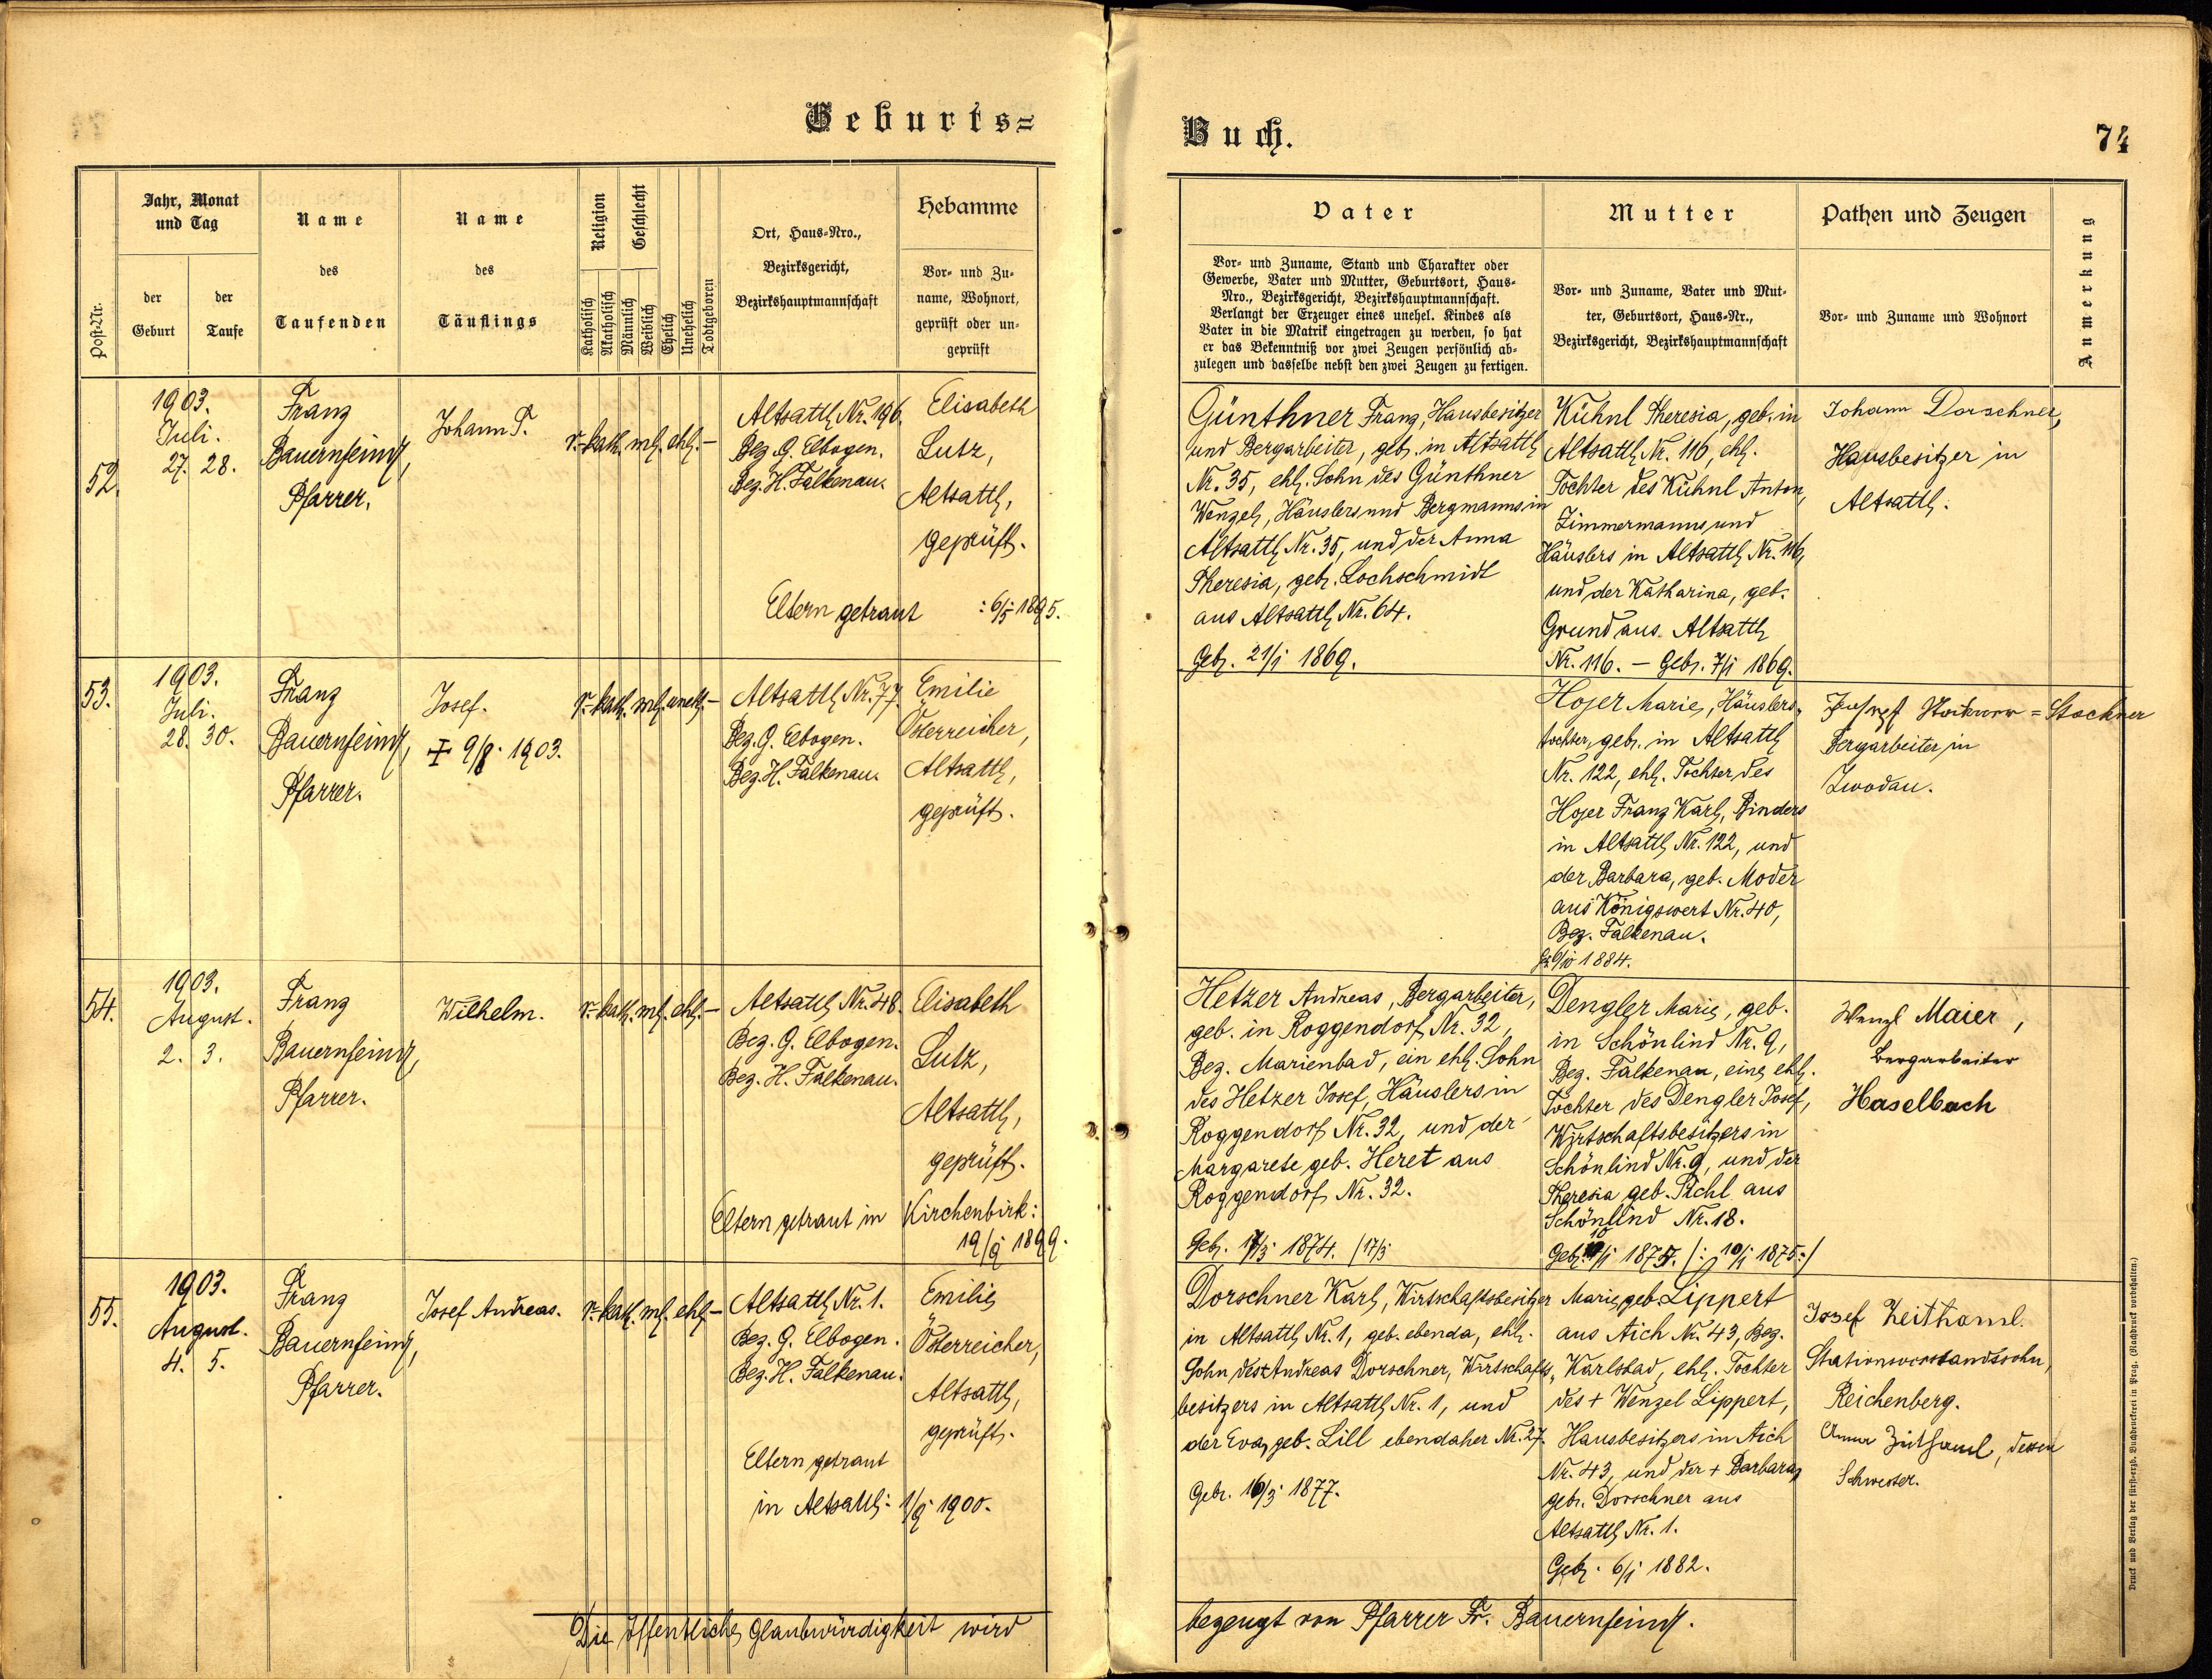 Geburts=
Buch.
74
Post-Nr.
Jahr, Monat
und Tag
der
Geburt
der
Taufe
Name
des
Taufenden
Name
des
Täuflings
Religion
Katholisch
Akatholisch
Geschlecht
Männlich
Weiblich
Ehelich
Unehelich
Todtgeboren
Ort, Haus-Nro.,
Bezirksgericht,
Bezirkshauptmannschaft
Hebamme
Vor- und Zu-
name, Wohnort,
geprüft oder un-
geprüft
Vater
Vor- und Zuname, Stand und Charakter oder
Gewerbe, Vater und Mutter, Geburtsort, Haus-
Nro., Bezirksgericht, Bezirkshauptmannschaft.
Verlangt der Erzeuger eines unehel. Kindes als
Vater in die Matrik eingetragen zu werden, so hat
er das Bekenntniß vor zwei Zeugen persönlich ab-
zulegen und dasselbe nebst den zwei Zeugen zu fertigen.
Mutter
Vor- und Zuname, Vater und Mut-
ter, Geburtsort, Haus-Nr.,
Bezirksgericht, Bezirkshauptmannschaft
Pathen und Zeugen
Vor- und Zuname und Wohnort
Anmerkung
52.
1903.
Juli.
27. 28.
Franz
Bauernfeind,
Pfarrer.
Johann T.
r.-kath. ml. ehl. –
Altsattl Nr. 196.
Bez. G. Elbogen.
Bez. H. Falkenau.
Elisabeth
Lutz,
Altsattl,
geprüft.
Eltern getraut :6/5 1895.
Günthner Franz, Hausbesitzer
und Bergarbeiter, geb. in Altsattl
Nr. 35, ehl. Sohn des Günthner
Wenzel, Häuslers und Bergmanns in
Altsattl Nr. 35, und der Anna
Theresia, geb. Lochschmidt
aus Altsattl Nr. 64.
Geb. 21/1 1869.
Kühnl Theresia, geb. in
Altsattl Nr. 116, ehl.
Tochter des Kühnl Anton,
Zimmermanns und
Häuslers in Altsattl Nr. 116,
und der Katharina, geb.
Grund aus Altsattl
Nr. 116. – Geb. 7/1 1869.
Johann Dorschner,
Hausbesitzer in
Altsattl.
53.
1903.
Juli.
28. 30.
Franz
Bauernfeind,
Pfarrer.
Josef.
† 9/8. 1903.
r.-kath. ml. unehl. –
Altsattl Nr. 77.
Bez. G. Elbogen.
Bez. H. Falkenau.
Emilie
Österreicher,
Altsattl,
geprüft.
Hojer Marie, Häuslers-
tochter, geb. in Altsattl
Nr. 122, ehl. Tochter des
Hojer Franz Karl, Binders
in Altsattl Nr. 122, und
der Barbara, geb. Moder
aus Königswert Nr. 40,
Bez. Falkenau.
1884.
= Stockner
Bergarbeiter in
Zwodau.
54.
1903.
August.
2. 3.
Franz
Bauernfeind,
Pfarrer.
Wilhelm.
r.-kath. ml. ehl. –
Altsattl Nr. 48.
Bez. G. Elbogen.
Bez. H. Falkenau.
Elisabeth
Lutz,
Altsattl,
geprüft.
Eltern getraut in Kirchenbirk:
19/9 1899.
Hetzer Andreas, Bergarbeiter,
geb. in Roggendorf Nr. 32,
Bez. Marienbad, ein ehl. Sohn
des Hetzer Josef, Häuslers in
Roggendorf Nr. 32, und der
Margarete geb. Heret aus
Roggendorf Nr. 32.
Geb. 17/3 1874. (17/3
Dengler Marie, geb.
in Schönlind Nr. 9,
Bez. Falkenau, eine ehl.
Tochter des Dengler Josef,
Wirtschaftsbesitzers in
Schönlind Nr. 9, und der
Theresia geb. Pichl aus
Schönlind Nr. 18.
Geb. 10/1 1875. /: 10/1 1875:/
Wenzl Maier,
Bergarbeiter
Haselbach
55.
1903.
August.
4. 5.
Franz
Bauernfeind,
Pfarrer.
Josef Andreas.
r.-kath. ml. ehl. –
Altsattl Nr. 1.
Bez. G. Elbogen.
Bez. H. Falkenau.
Emilie
Österreicher,
Altsattl,
geprüft.
Eltern getraut
in Altsattl: 1/9 1900.
Dorschner Karl, Wirtschaftsbesitzer
in Altsattl Nr. 1, geb. ebenda, ehl.
Sohn des Andreas Dorschner, Wirtschafts-
besitzers in Altsattl Nr. 1, und
der Eva, geb. Lill ebendaher Nr. 27.
Geb. 16/3 1877.
Marie, geb. Lippert
aus Aich Nr. 43, Bez.
Karlsbad, ehl. Tochter
des + Wenzel Lippert,
Hausbesitzers in Aich
Nr. 43, und der + Barbara,
geb. Dorschner aus
Altsattl Nr. 1.
Geb. 6/1 1882.
Josef Zeithaml.
Stationsvorstandssohn,
Reichenberg.
Anna Zeithaml, dessen
Schwester.
Die öffentliche Glaubwürdigkeit wird
bezeugt von Pfarrer Fr. Bauernfeind.
Druck und Verlag der fürst-erzb. Buchdruckerei in Prag. (Nachdruck vorbehalten.)